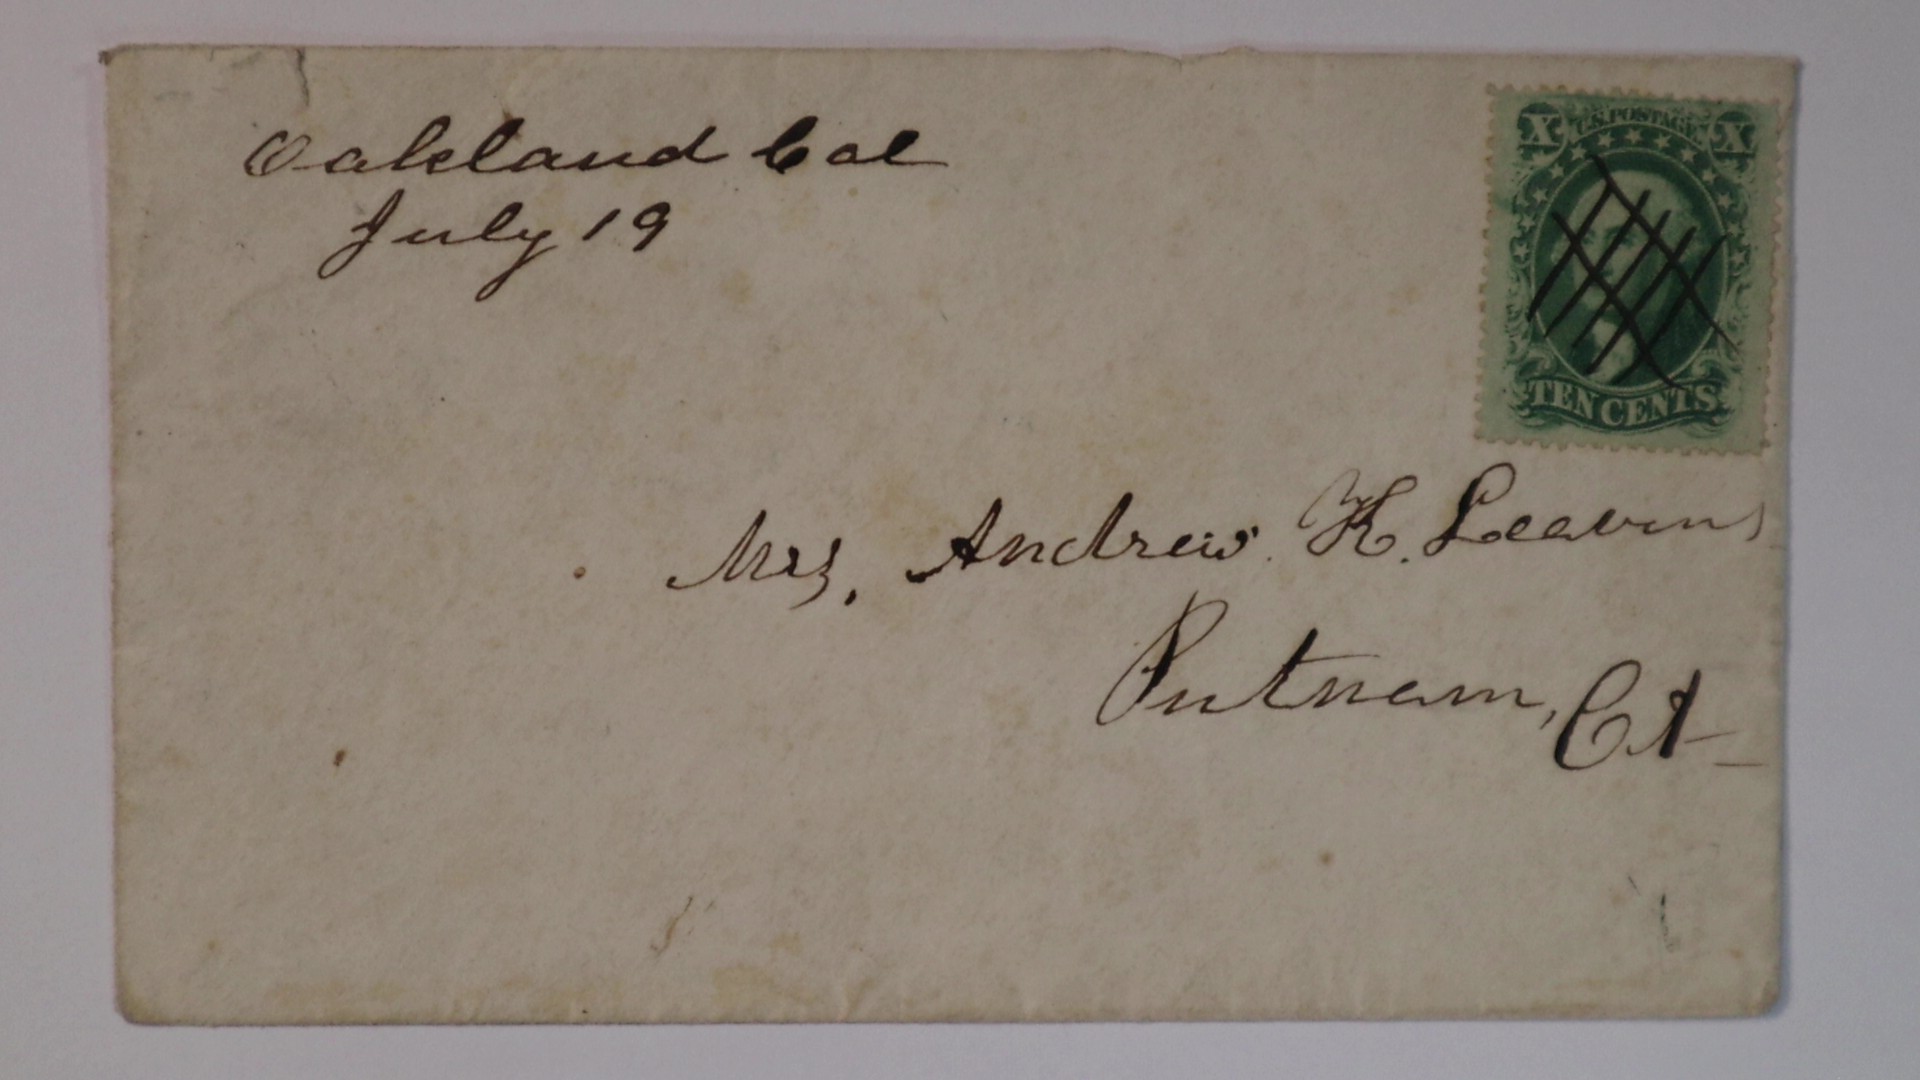 Oakland Cal
July 19
X U.S. POSTAGE X
TEN CENTS
Mrs, Andrew K. Leavens
Putnam, Ct